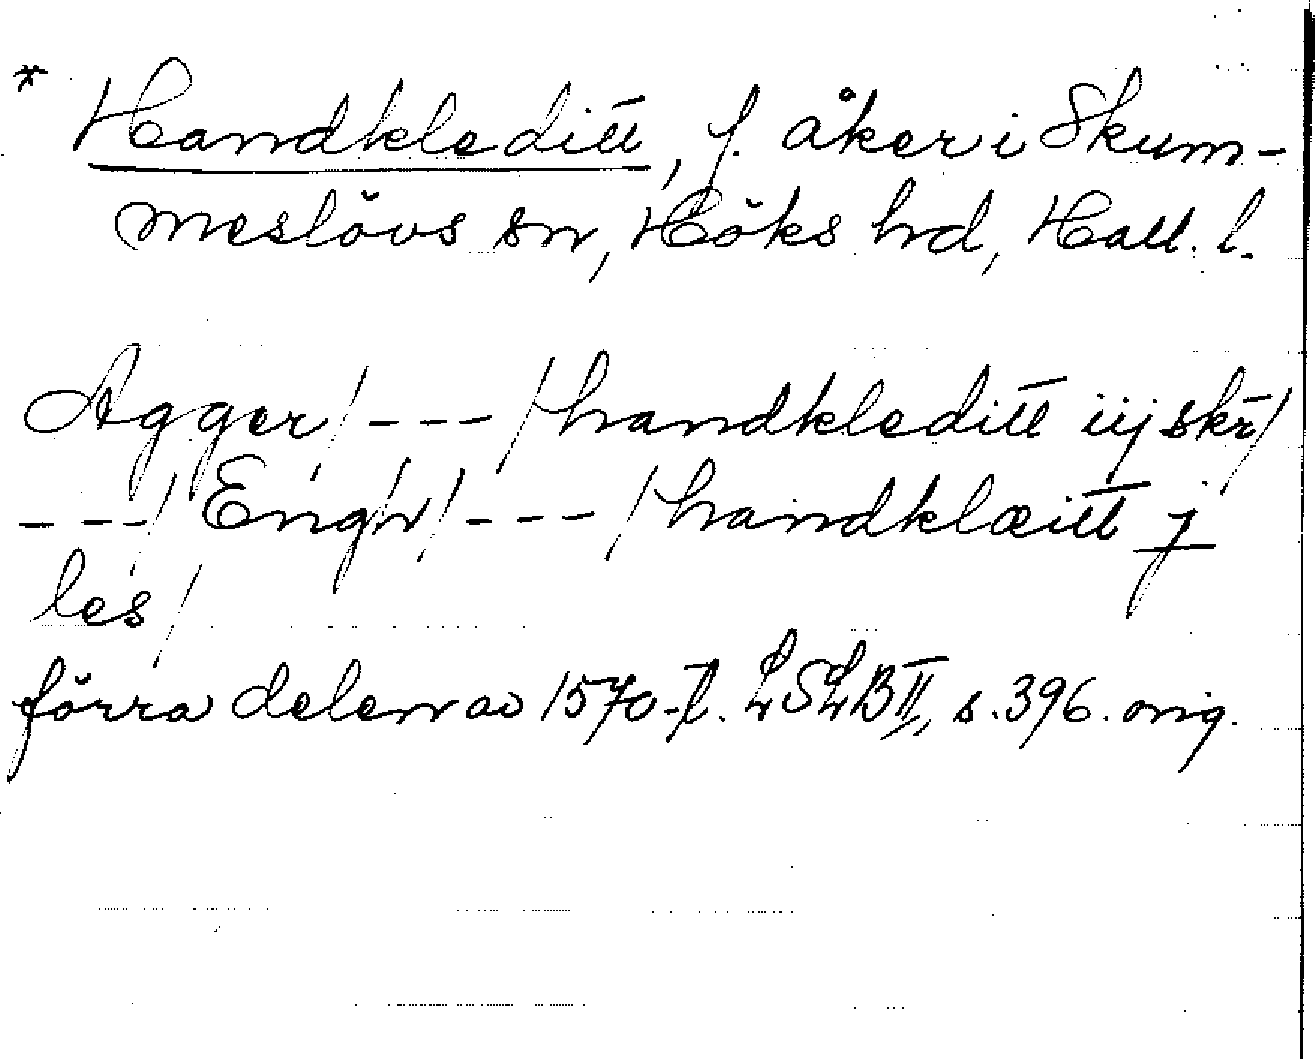 * Handkleditt, f. åker i Skum-
meslövs sn, Höks hrd, Hall. l.
Agger/---/handkleditt iij skr/
---/Engh/---/handklæitt j
les/
förra delen av 1570-t. LSLB II, s. 396. orig.